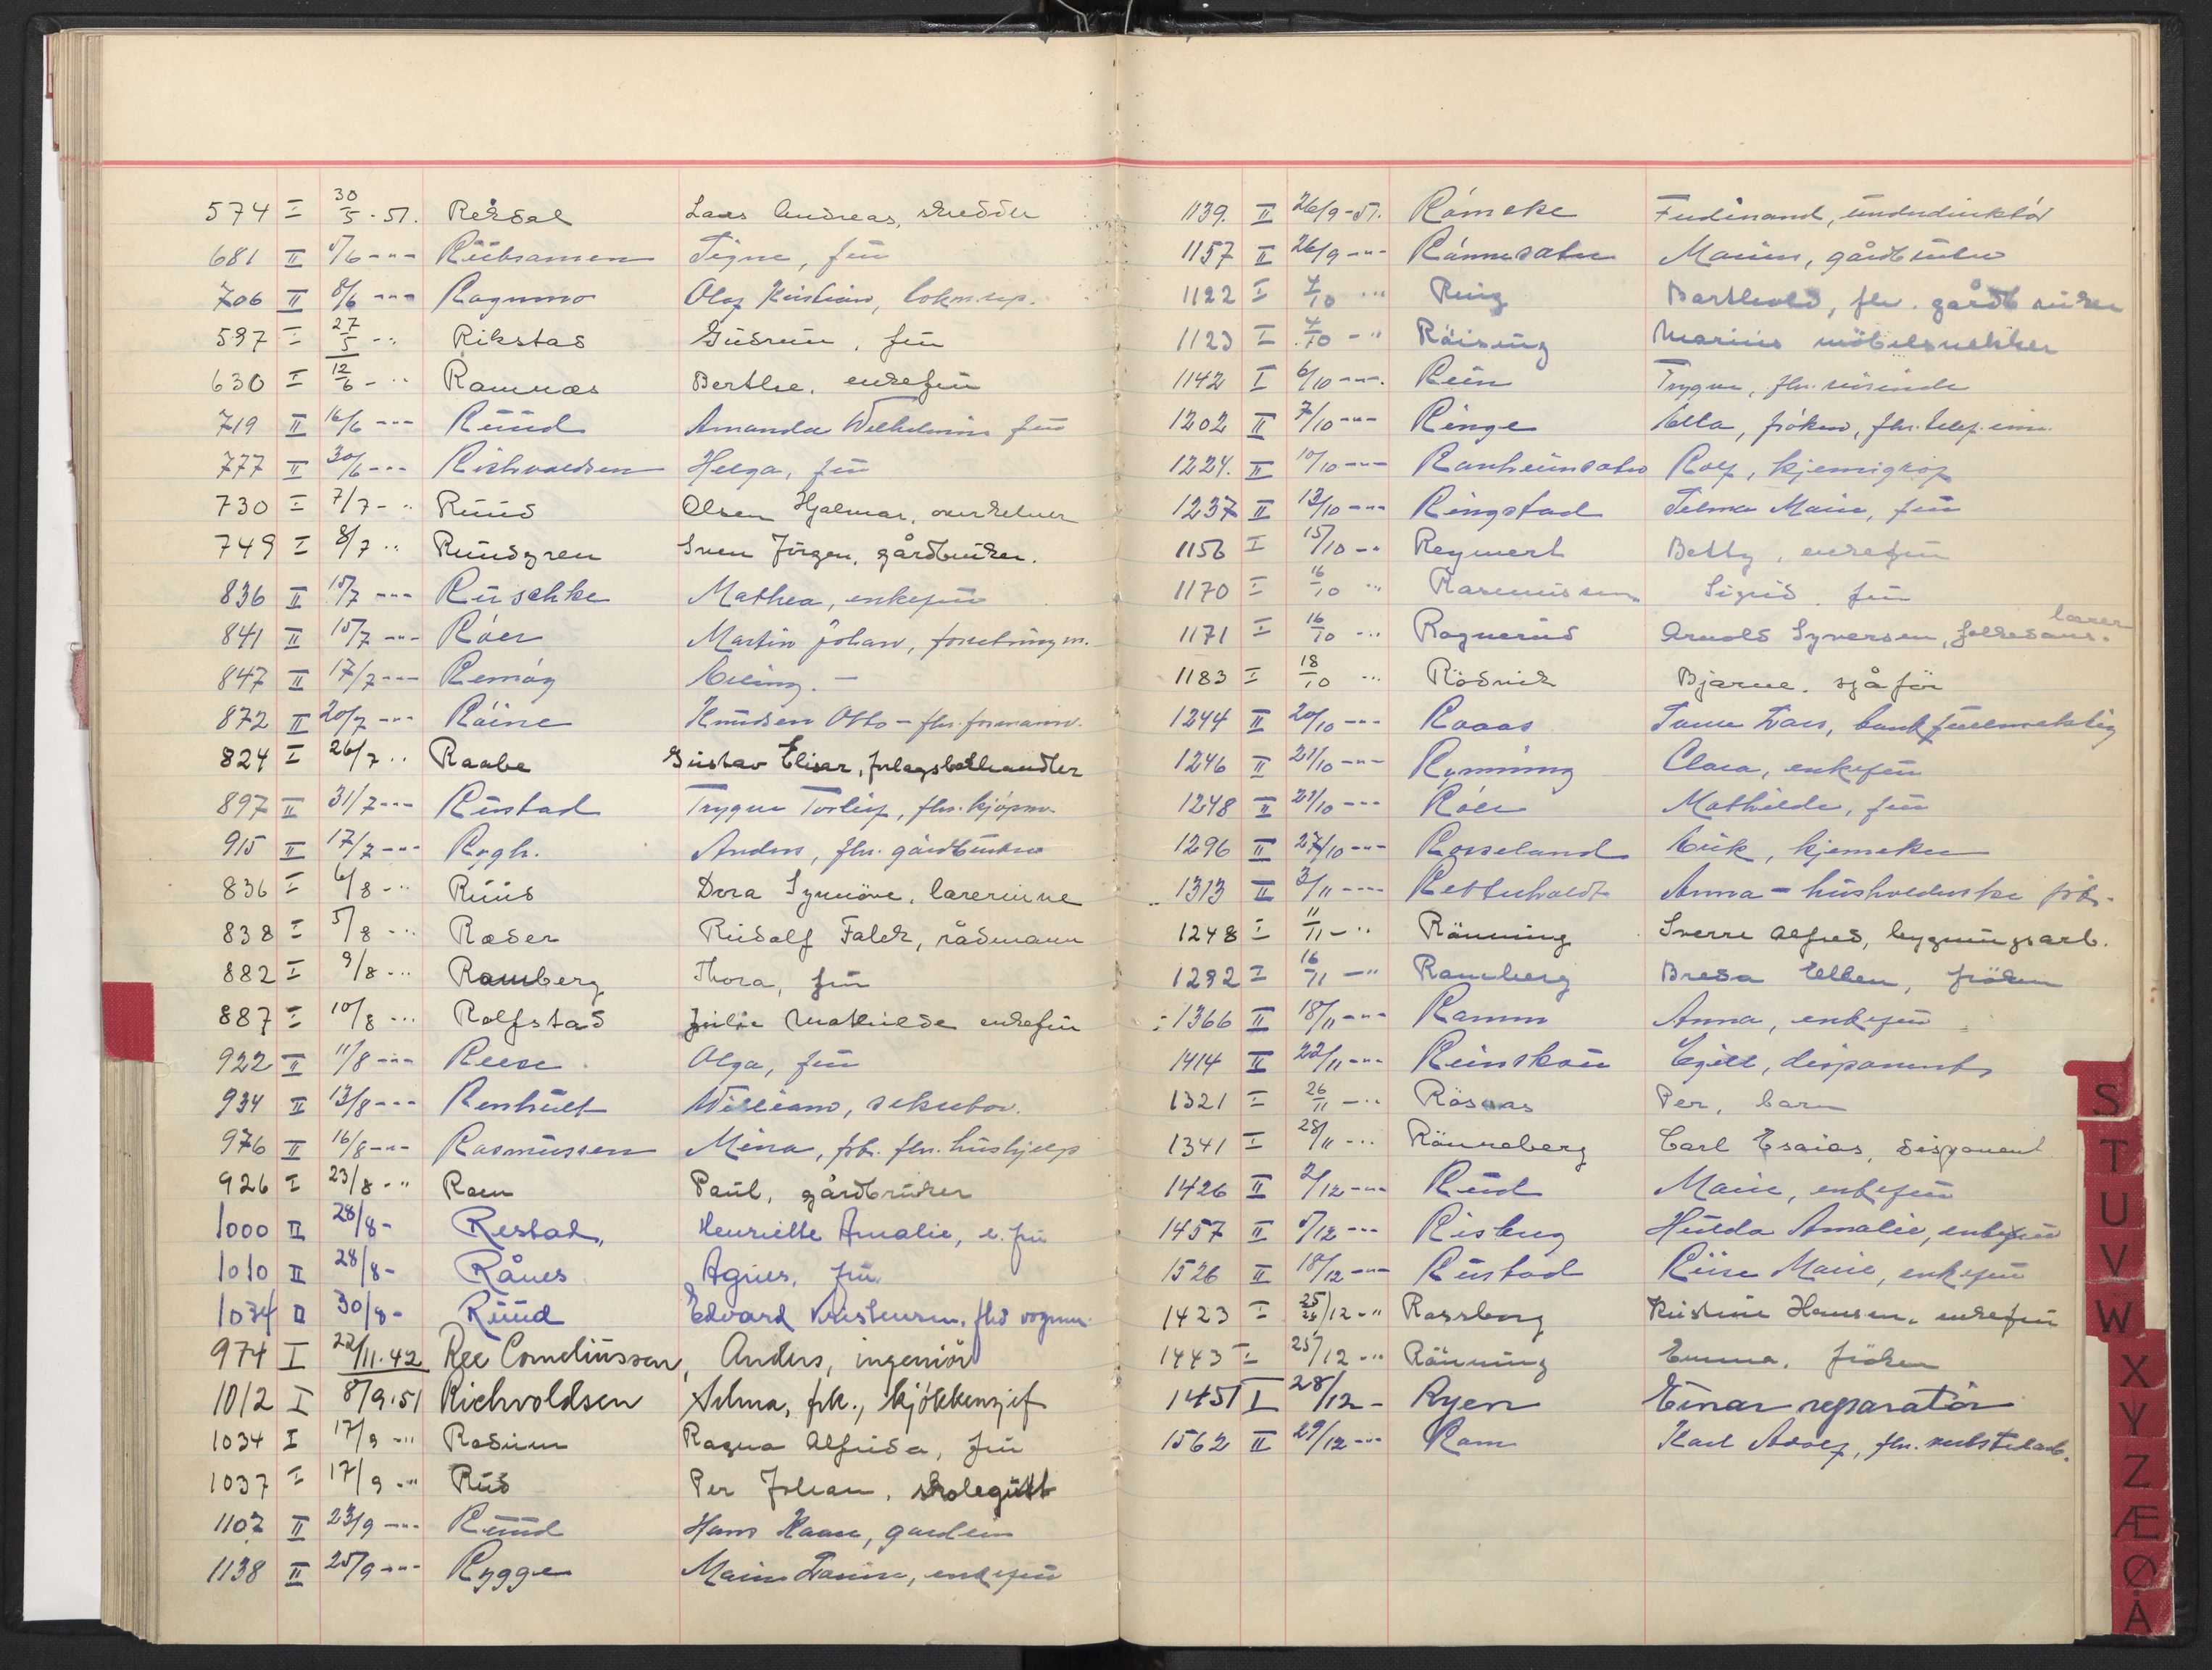 574 I 30/5-51. Rekdal Lars Andreas, skredder
681 II 5/6 -"- Rübsamen Signe, frü
706 II 8/6 -"- Ragnmo Olaf Kristian, lokm.rep.
597 I 27/5 -" Rikstad Gudrun, frü
630 I 12/6 -" Ramnæs Berthe, enkefrü
719 II 16/6 -"- Ruud Amanda Wilhelmine frü
777 II 30/6 -"- Richvoldsen Helga, frü
730 I 7/7 -" Ruud Olsen Hjalmar, overkelner
749 I 8/7 " Rundgren Sven Jürgen, gårdbruker.
836 II 15/7 -"- Ruschke Mathea, enkefrü
841 II 15/7 -"- Röer Martin Johan, forretningsm.
847 II 17/7 -"- Remöy Erling. —
872 II 20/7 -"- Röine Knudsen Otto - fhv. formann.
824 I 26/7 " Raabe Gustav Elisar, forlagsbokhandler
897 II 31/7 -"- Rustad Trygve Torleif, fhv. kjöpm.
915 II 17/7 -"- Rygh. Anders, fhv. gårdbruker
836 I 6/8 -" Ruud Dora Synnöve, lærerinne
838 I 5/8 -" Ræder Rudolf Falck, rådmann
882 I 9/8 -" Ramberg Thora, frü
887 I 10/8 -" Rolfstad Julie Mathilde enkefrü
922 II 11/8 -"- Reese Olga, frü
934 II 13/8 -"- Renhult William, sekretær.
976 II 16/8 -"- Rasmussen Mina, frk. fhv. hushjelp
926 I 23/8 -" Roen Paul, gårdbruker
1000 II 28/8- Restad, Henriette Amalie, e. frü
1010 II 28/8- Rånes Agnes, frü
1034 II 30/8- Ruud Edvard Kristensen, fhv vognm.
974 I 22/11.42 Ree Corneliussen, Anders, ingeniör
1012 I 8/9.51 Richvoldsen Selma, frk., kjökkensjef
1034 I 17/9 -" Rodum Ragna Alfrida, frü
1037 I 17/9 -" Rud Per Johan, skolegutt
1107 II 23/9 -"- Ruud Hans Kaare,
1138 II 25/9 -"- Rygge Marie enkefrü
1139. II 26/9-51. Römcke Ferdinand, underdirektör
1157 II 26/9 -"- Rönnesater Marius, gårdbruker
1122 I 4/10 -" Ring Barthold, fhv. gårdbruker
1123 I 4/10 -" Röising Marius möbelsnekker
1142 I 6/10 -"- Rein Trygve, fhv. reisende
1202 II 7/10 -"- Ringe Ella, fröken, fhv. telef.
1224. II 10/10 -"- Ranheimsæter Rolf, kjemigraf
1237 II 13/10 -"- Ringstad Selma Marie, frü
1156 I 15/10 -" Reymert Betty, enkefrü
1170 I 16/10 -" Rasmussen Sigrid, frü
1171 I 16/10 -" Ragnerud Arnold Syversen, folkedans- lærer
1183 I 18/10 -" Rödvik Bjarne. sjåför
1244 II 20/10 -"- Roaas bankfullmektig
1246 II 21/10 -"- Rynning Clara, enkefrü
1248 II 21/10 -"- Röer Mathilde, frü
1296 II 27/10 -"- Rosseland Erik, kjemiker
1313 II 3/11 -"- Retterholdt Anna - husholderske frk.
1248 I 11/11 -" Rönning Sverre Alfred, bygningsarb.
1292 I 16/11 -" Ramberg Breda Ellen, fröken
1366 II 18/11 -"- Ramm Anna, enkefrü
1414 II 22/11 -"- Reinskou Egill, disponent
1321 I 26/11 -" Rösaas Per, barn
1341 I 28/11 -" Rönneberg Carl Esaias, disponent
1426 II 2/12 -"- Rud Marie, enkefrü
1457 II 5/12 -"- Risberg Hulda Amalie, enkefrü
1526 II 18/12 -"- Rustad Marie, enkefrü
1423 I 25/12 -" Rassborg Kristine Hansen, enkefrü
1443 I 25/12 -" Rönning Emma, fröken
1451 I 28/12 - Ryen Einar reparatör
1562 II 29/12 -"- Ram Karl Adolf, fhv. verkstedarb.
S
T
U
V
W
X
Y
Z
Æ
Ø
Å